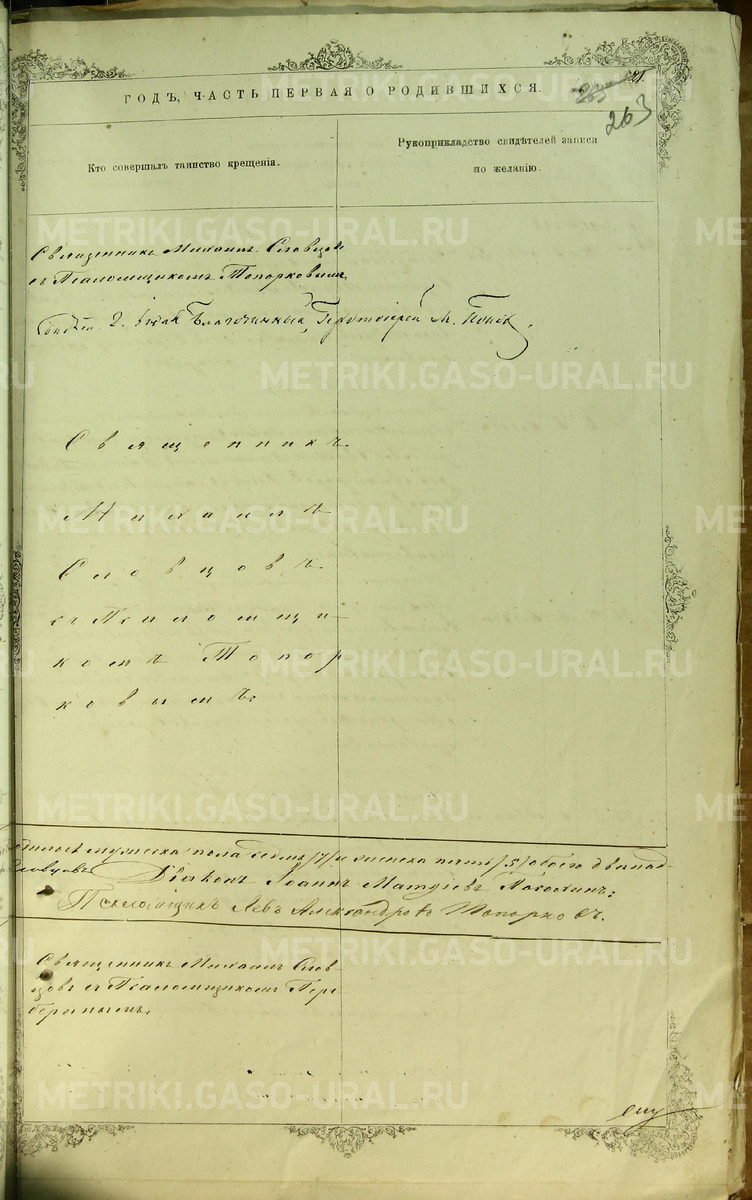 ГОДЪ, ЧАСТЬ ПЕРВАЯ О РОДИВШИХСЯ.
263
Кто совершалъ таинство крещенія.
Рукоприкладство свидѣтелей записи
по желанію.
Священникъ Михаилъ Словцовъ
съ Псаломщикомъ Топорковымъ.
2. Благочинный, Протоіерей М.
Священникъ
Михаилъ
Словцовъ
съ Псаломщи
комъ Топор
ковымъ.
мужеска пола семь /7/ и женска пять /5/ обоего двѣнад-
Словцовъ Діаконъ Іоаннъ
Псаломщикъ Левъ Александровъ Топорковъ.
Священникъ Михаилъ Слов-
цовъ съ Псаломщикомъ
METRIKI.GASO-URAL.RU